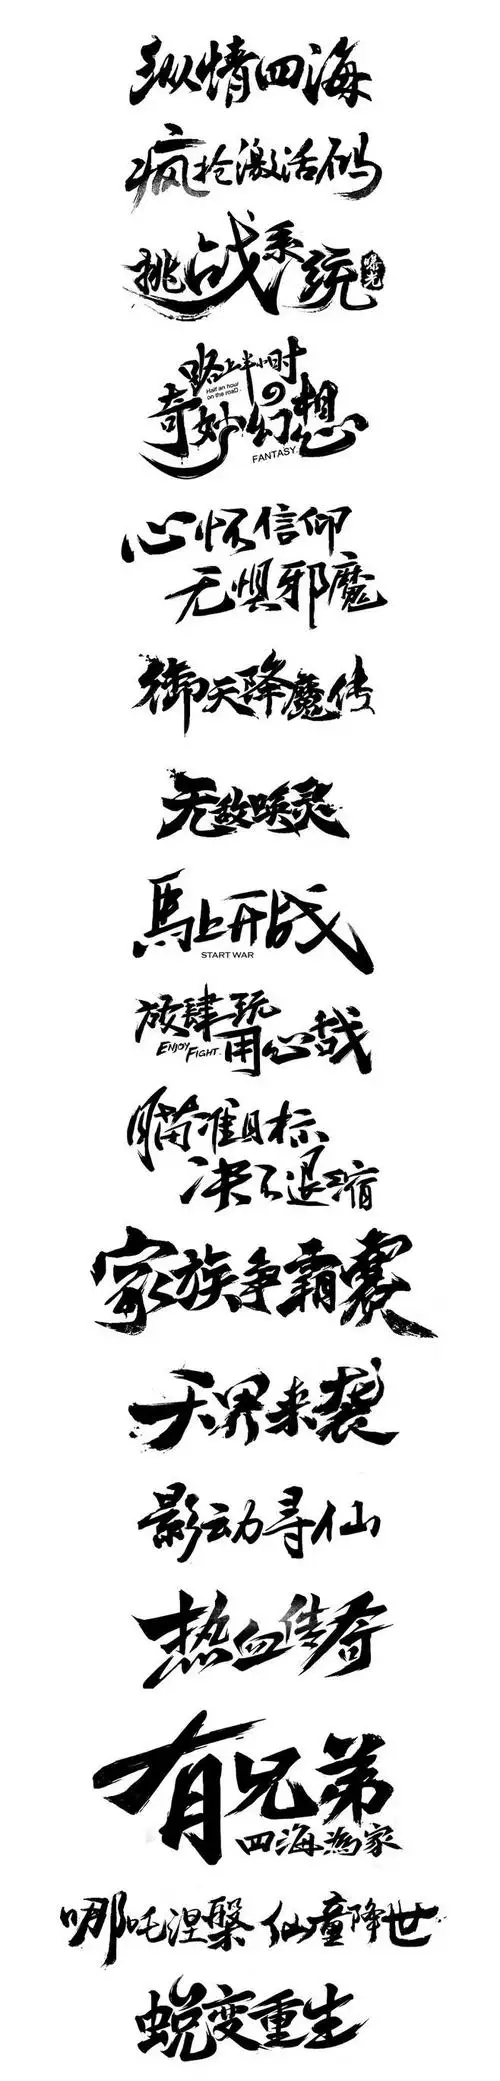 纵情四海
疯抢激活码
挑战系统
曝光
路上半小时
Half an hour
on the roaD.
の
奇妙幻想
FANTASY.
心怀信仰
无惧邪魔
御天降魔传
无敌唤灵
馬上开战
START WAR
放肆玩
ENJOY FIGHT.
用心哉
瞄准目标
决不退缩
家族争霸赛
天界来袭
影动寻仙
热血传奇
有兄弟
四海為家
哪吒涅槃 仙童降世
蜕变重生